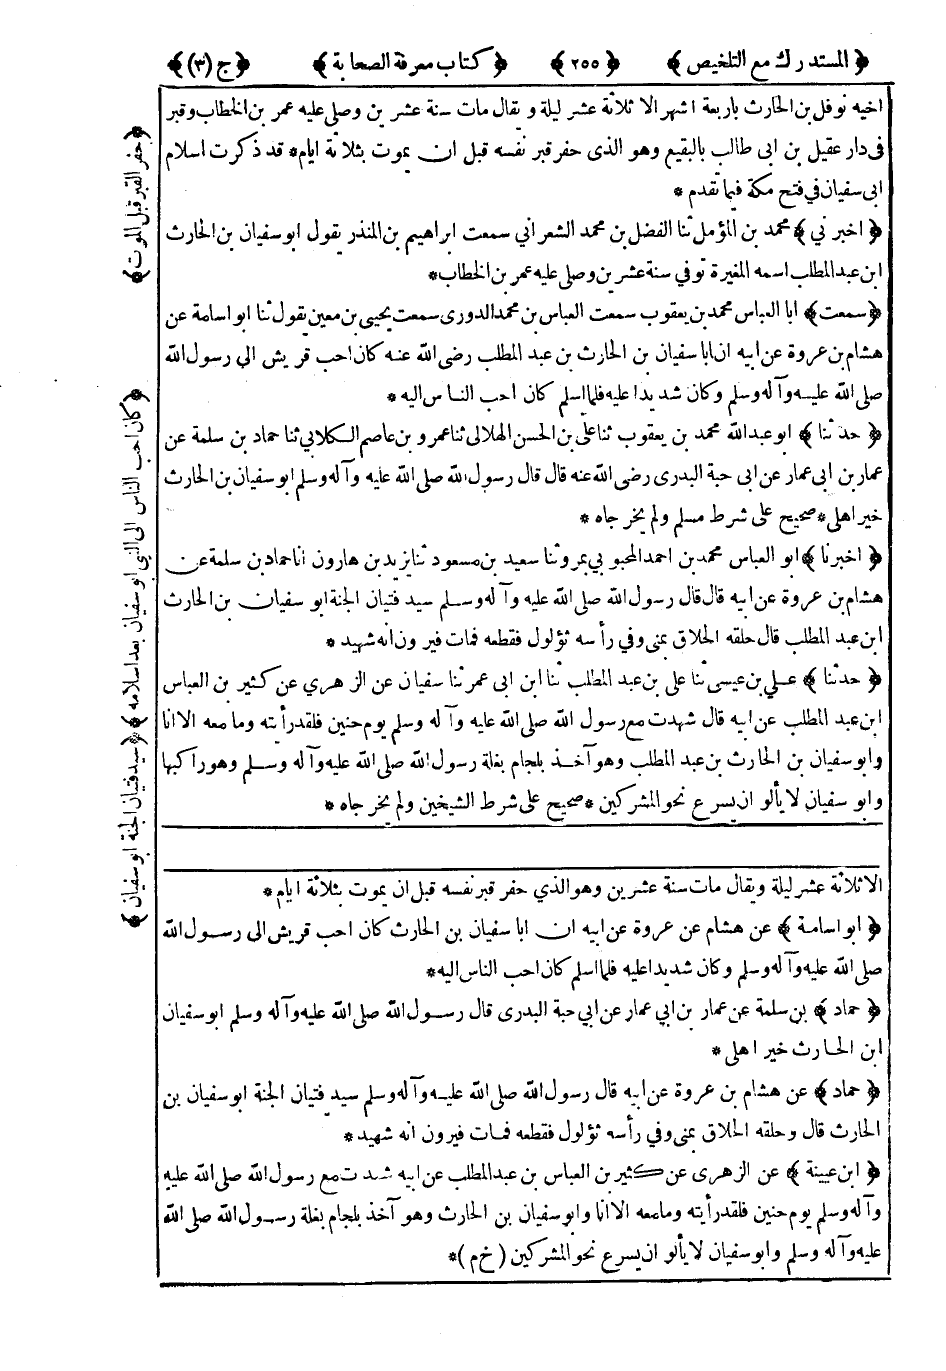 ﴿ المستدرك مع التلخيص ﴾ ﴿ ٢٥٥ ﴾ ﴿ كتاب معرفة الصحابة ﴾ ﴿ ج (٣) ﴾
اخيه نوفل بن الحارث باربعة اشهر الا ثلاثة عشر ليلة ويقال مات سنة عشرين وصلى عليه عمر بن الخطاب وقبر
فى دار عقيل بن ابى طالب بالبقيع وهو الذى حفر قبر نفسه قبل ان يموت بثلاثة ايام* قد ذكرت اسلام
ابى سفيان في فتح مكة فيما تقدم *
﴿ اخبرني ﴾ محمد بن المؤمل ثنا الفضل بن محمد الشعراني سمعت ابراهيم بن المنذر يقول ابو سفيان بن الحارث
ابن عبد المطلب اسمه المغيرة توفي سنة عشرين وصلى عليه عمر بن الخطاب*
﴿سمعت﴾ ابا العباس محمد بن يعقوب سمعت العباس بن محمد الدورى سمعت يحيى بن معين يقول ثنا ابو اسامة عن
هشام بن عروة عن ابيه ان ابا سفيان بن الحارث بن عبد المطلب رضى الله عنه كان احب قريش الى رسول الله
صلى الله عليه وآله وسلم وكان شديدا عليه فلما اسلم كان احب الناس اليه *
﴿ حدثنا ﴾ ابو عبد الله محمد بن يعقوب ثنا على بن الحسن الهلالى ثنا عمرو بن عاصم الكلابي ثنا حماد بن سلمة عن
عمار بن ابى عمار عن ابى حبة البدرى رضى الله عنه قال قال رسول الله صلى الله عليه وآله وسلم ابو سفيان بن الحارث
خير اهلى * صحيح على شرط مسلم ولم يخرجاه *
﴿ اخبرنا ﴾ ابو العباس محمد بن احمد المحبوبي بمرو ثنا سعيد بن مسعود ثنا يزيد بن هارون انا حماد بن سلمة عن
هشام بن عروة عن ابيه قال قال رسول الله صلى الله عليه وآله وسلم سيد فتيان الجنة ابو سفيان بن الحارث
ابن عبد المطلب قال حلقه الحلاق بمنى وفي رأسه ثؤلول فقطعه فمات فيرون انه شهيد *
﴿ حدثنا ﴾ على بن عيسى ثنا على بن عبد المطلب ثنا ابن ابى عمر ثنا سفيان عن الزهري عن كثير بن العباس
ابن عبد المطلب عن ابيه قال شهدت مع رسول الله صلى الله عليه وآله وسلم يوم حنين فلقد رأيته وما معه الا انا
وابو سفيان بن الحارث بن عبد المطلب وهو آخذ بلجام بغلة رسول الله صلى الله عليه وآله وسلم وهو راكبها
وابو سفيان لا يألو ان يسرع نحو المشركين * صحيح على شرط الشيخين ولم يخرجاه *
الا ثلاثة عشر ليلة ويقال مات سنة عشرين وهو الذي حفر قبر نفسه قبل ان يموت بثلاثة ايام *
﴿ ابو اسامة ﴾ عن هشام عن عروة عن ابيه ان ابا سفيان بن الحارث كان احب قريش الى رسول الله
صلى الله عليه وآله وسلم وكان شديدا عليه فلما اسلم كان احب الناس اليه*
﴿ حماد ﴾ بن سلمة عن عمار بن ابي عمار عن ابي حبة البدرى قال رسول الله صلى الله عليه وآله وسلم ابو سفيان
ابن الحارث خير اهلى *
﴿ حماد ﴾ عن هشام بن عروة عن ابيه قال رسول الله صلى الله عليه وآله وسلم سيد فتيان الجنة ابو سفيان بن
الحارث قال وحلقه الحلاق بمنى وفي رأسه ثؤلول فقطعه فمات فيرون انه شهيد *
﴿ ابن عيينة ﴾ عن الزهرى عن كثير بن العباس بن عبد المطلب عن ابيه شهدت مع رسول الله صلى الله عليه
وآله وسلم يوم حنين فلقد رأيته وما معه الا انا وابو سفيان بن الحارث وهو آخذ بلجام بغلة رسول الله صلى الله
عليه وآله وسلم وابو سفيان لا يألو ان يسرع نحو المشركين ( خ م )*
﴿حفر القبر قبل الموت﴾
﴿كان احب الناس الى النبي ابو سفيان بعد اسلامه﴾ ﴿سيد فتيان الجنة ابو سفيان﴾